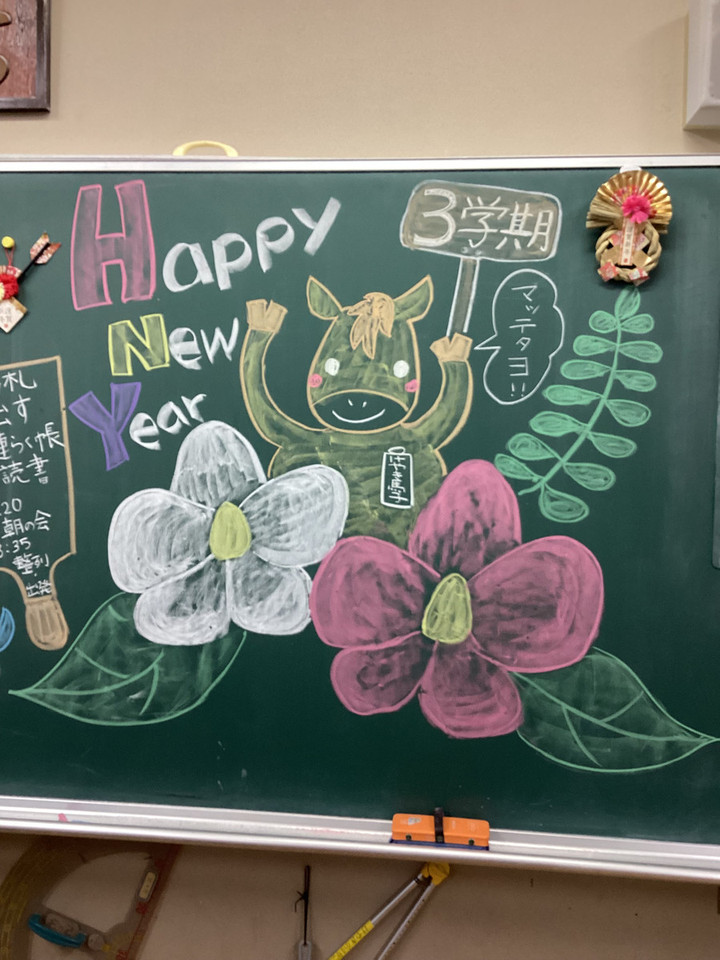 Happy
New
Year
3学期
マッテタヨ!!
札
出す
連らく帳
読書
20
朝の会
8:35
整列
出発